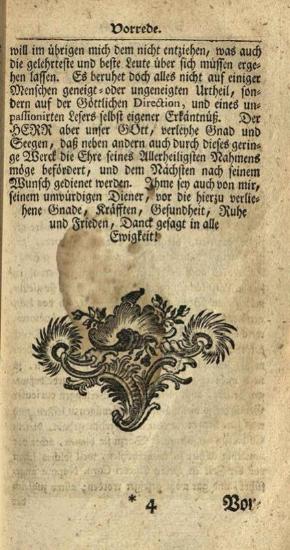 Vorrede.
will im übrigen mich dem nicht entziehen, was auch
die gelehrteste und beste Leute über sich müssen erge-
hen lassen. Es beruhet doch alles nicht auf einiger
Menschen geneigt- oder ungeneigten Urtheil, son-
dern auf der Göttlichen Direction, und eines un-
passionirten Lesers selbst eigener Erkäntnüß. Der
HERR aber unser GOtt, verleyhe Gnad und
Seegen, daß neben andern auch durch dieses gerin-
ge Werck die Ehre seines Allerheiligsten Nahmens
möge befördert, und dem Nächsten nach seinem
Wunsch gedienet werden. Ihme sey auch von mir,
seinem unwürdigen Diener, vor die hierzu verlie-
hene Gnade, Kräfften, Gesundheit, Ruhe
und Frieden, Danck gesagt in alle
Ewigkeit!
* 4 Vor-